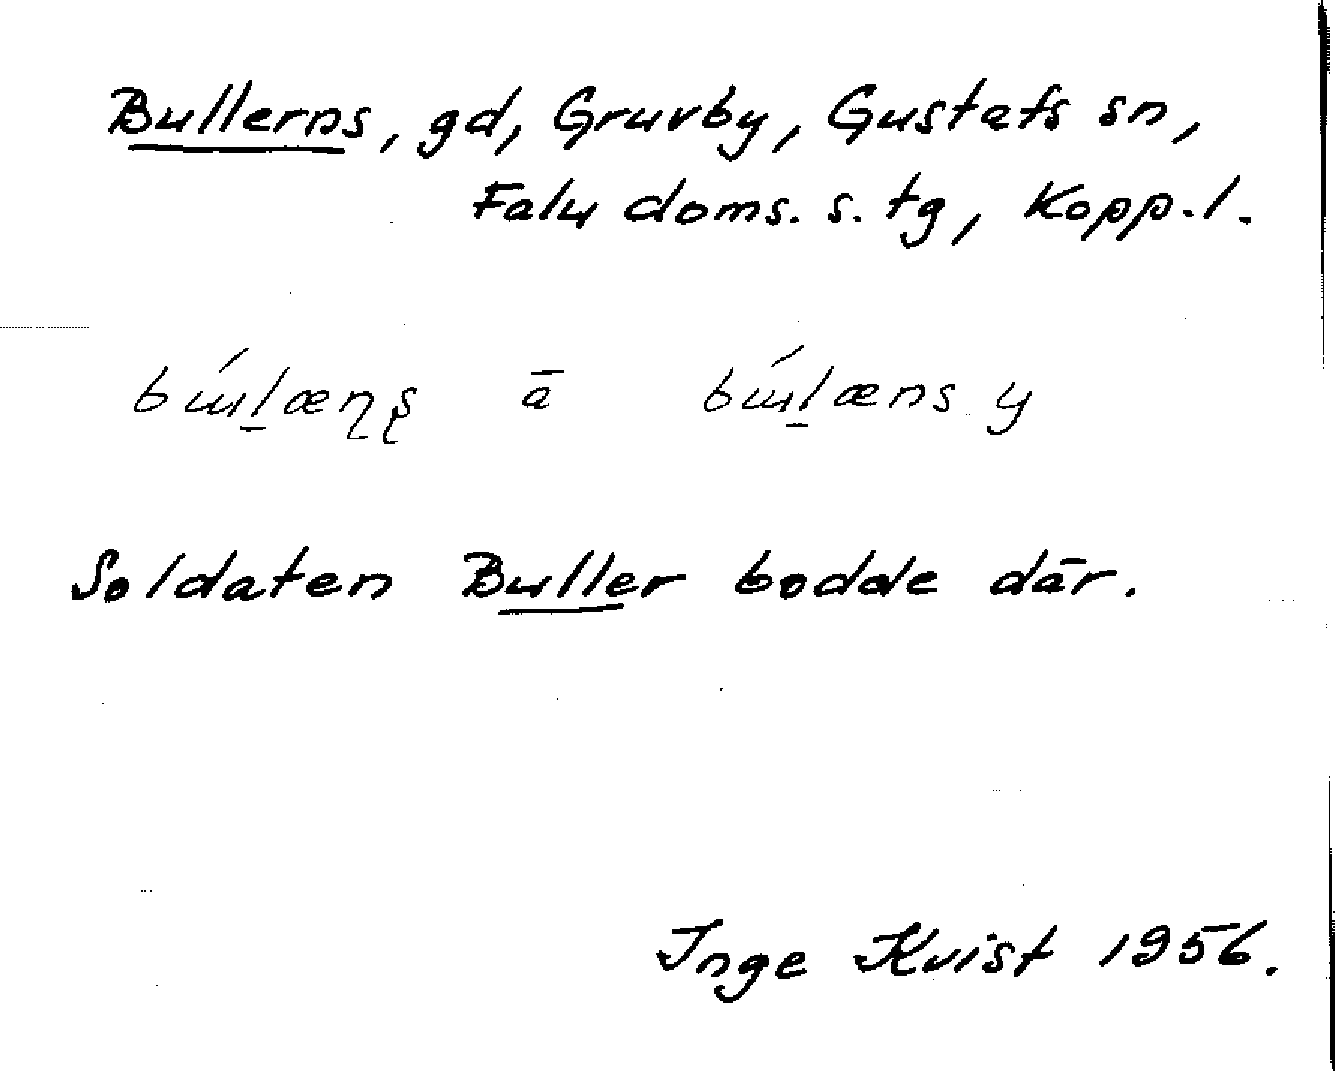 Bullerns, gd, Gruvby, Gustafs sn,
Falu doms. s. tg, Kopp. l.
bɯ́l̠æɳʂ ā bɯ́l̠æns y
Soldaten Buller bodde där.
Inge Kvist 1956.